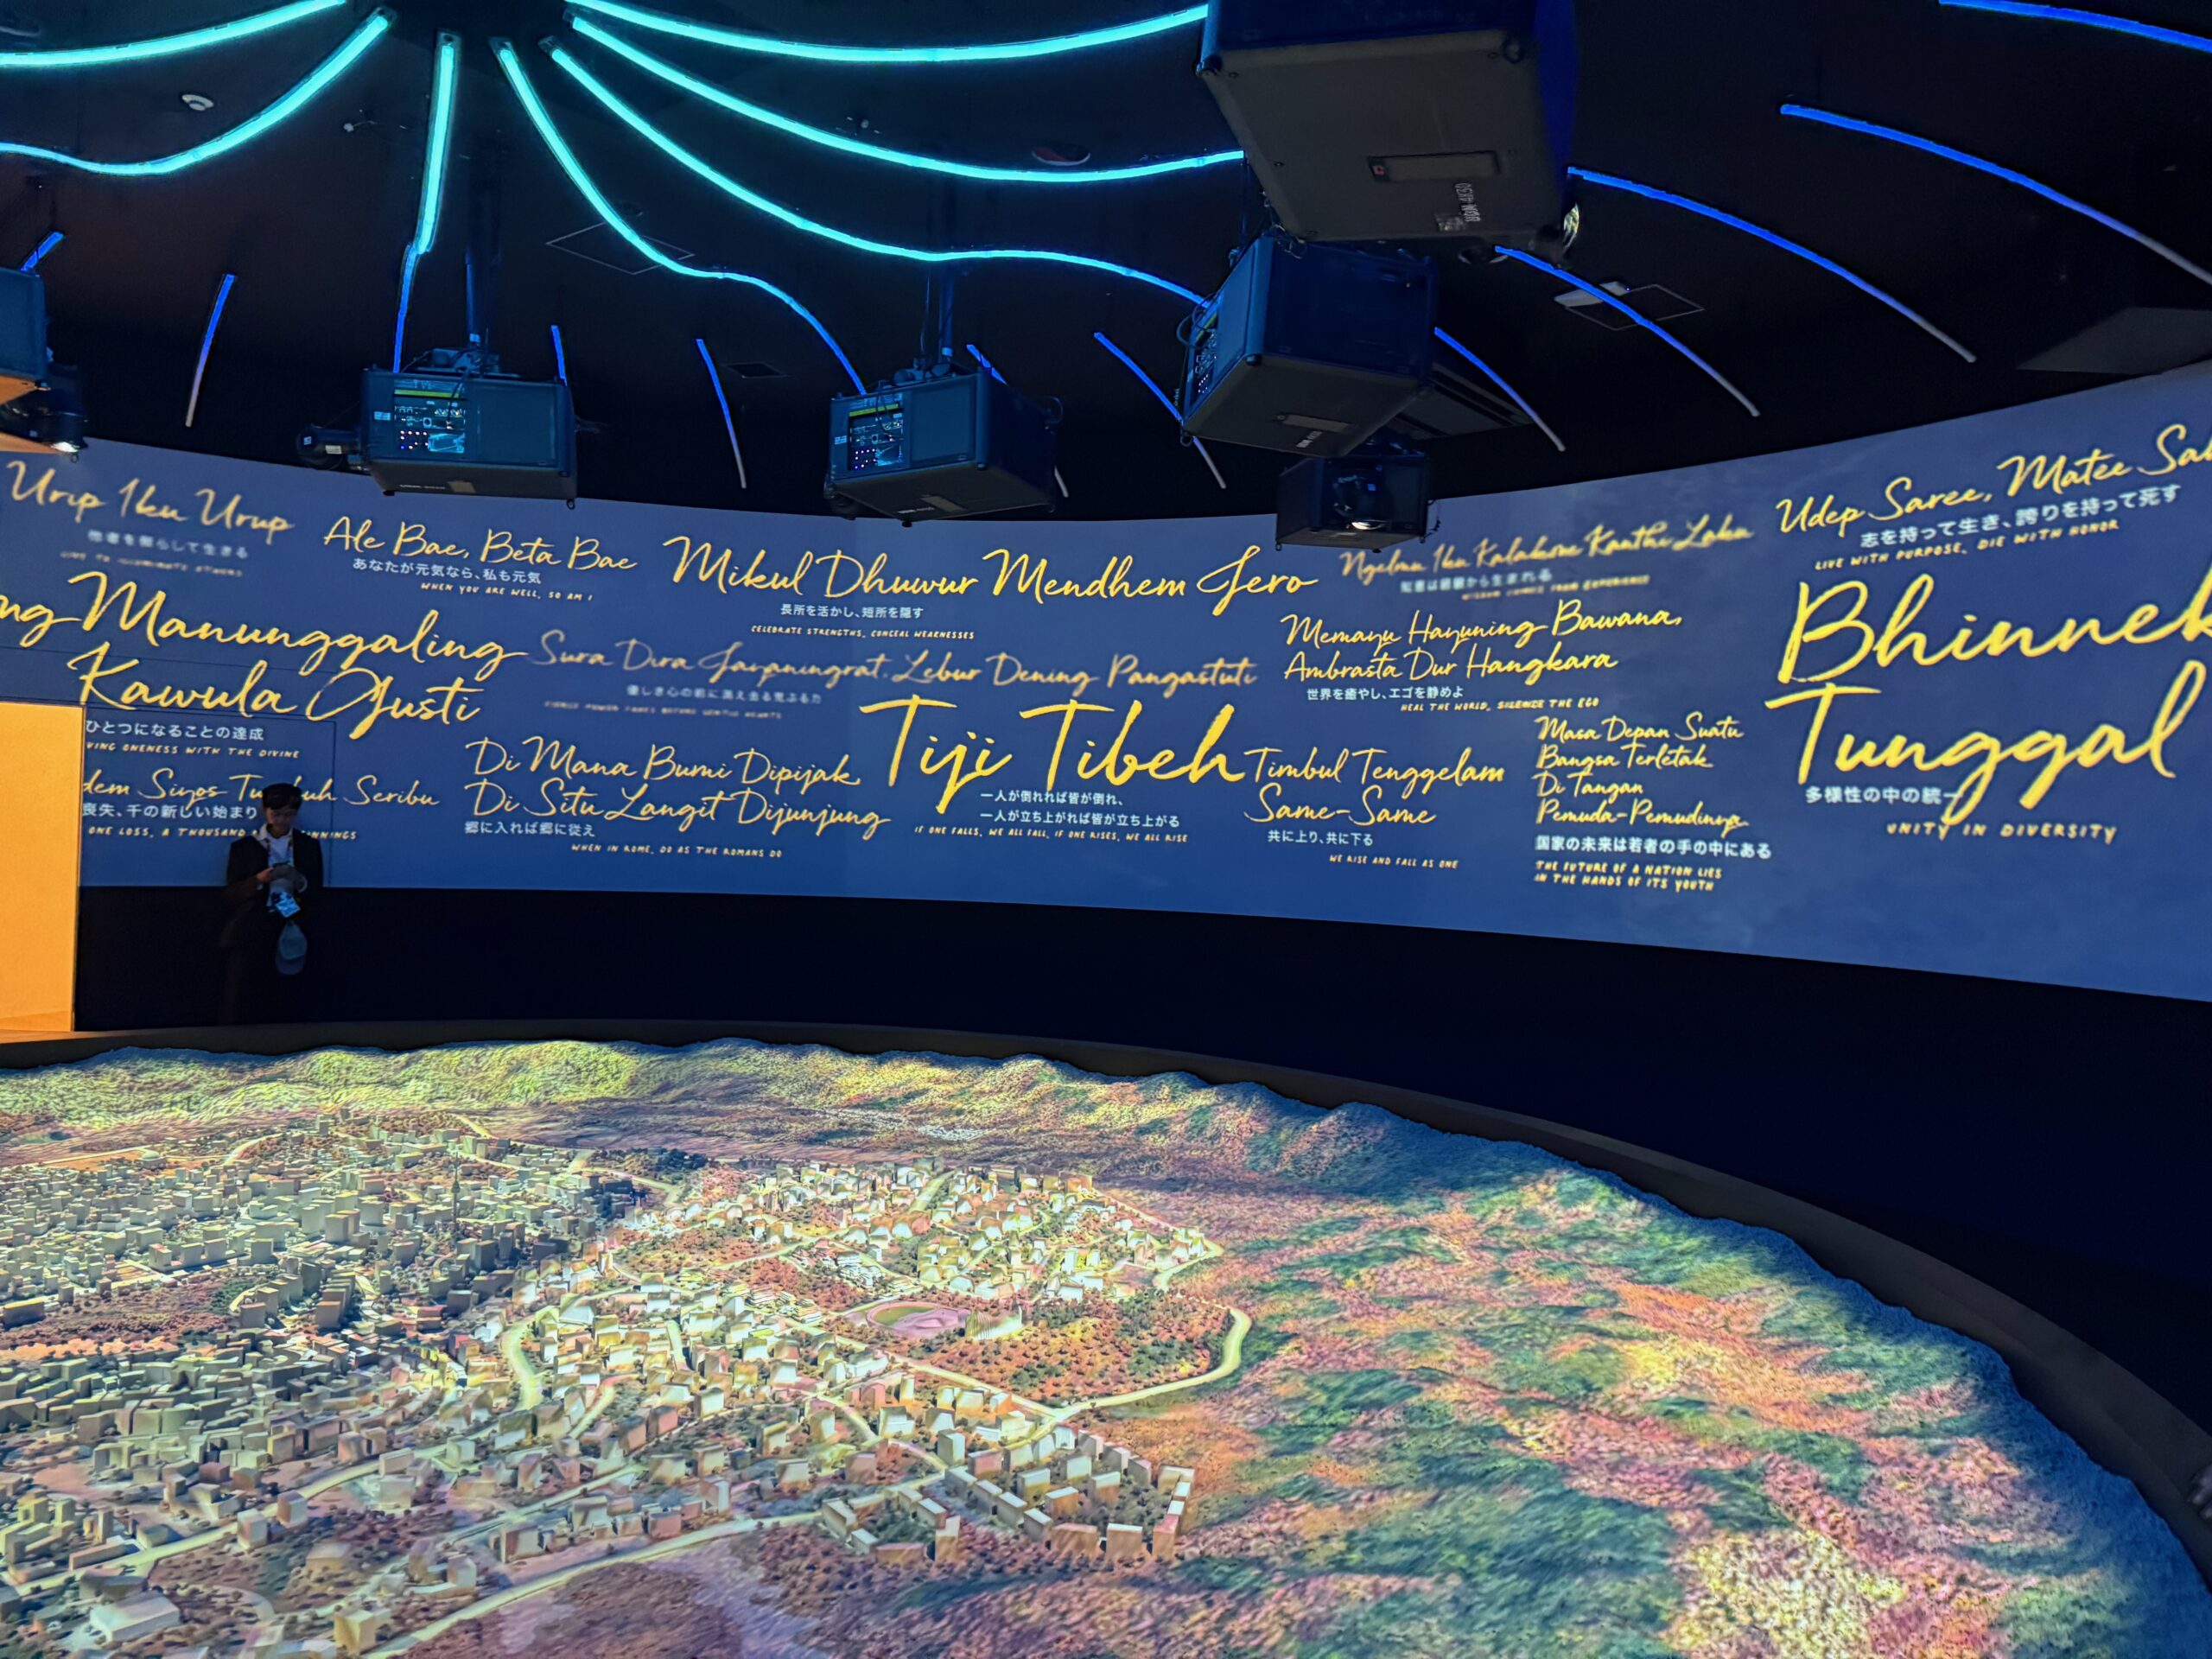 Urip Iku Urup
他者を照らして生きる
LIVE TO ILLUMINATE OTHERS
Ale Bae, Beta Bae
あなたが元気なら、私も元気
WHEN YOU ARE WELL, SO AM I
Mikul Dhuwur Mendhem Jero
長所を活かし、短所を隠す
CELEBRATE STRENGTHS, CONCEAL WEAKNESSES
Ngelmu Iku Kalakone Kanthi Laku
知恵は経験から生まれる
WISDOM COMES FROM EXPERIENCE
Udep Saree, Matee Sa
志を持って生き、誇りを持って死す
LIVE WITH PURPOSE, DIE WITH HONOR
ng Manunggaling
Kawula Gusti
ひとつになることの達成
VING ONENESS WITH THE DIVINE
Sura Dira Jayaningrat, Lebur Dening Pangastuti
優しき心の前に消え去る荒ぶる力
FIERCE POWER FADES BEFORE GENTLE HEARTS
Memayu Hayuning Bawana,
Ambrasta Dur Hangkara
世界を癒やし、エゴを静めよ
HEAL THE WORLD, SILENCE THE EGO
Bhinnek
Tunggal
多様性の中の統一
UNITY IN DIVERSITY
dem Siyos Tu uh Seribu
喪失、千の新しい始まり
ONE LOSS, A THOUSAND INNINGS
Di Mana Bumi Dipijak,
Di Situ Langit Dijunjung
郷に入れば郷に従え
WHEN IN ROME, DO AS THE ROMANS DO
Tiji Tibeh
一人が倒れれば皆が倒れ、
一人が立ち上がれば皆が立ち上がる
IF ONE FALLS, WE ALL FALL, IF ONE RISES, WE ALL RISE
Timbul Tenggelam
Same-Same
共に上り、共に下る
WE RISE AND FALL AS ONE
Masa Depan Suatu
Bangsa Terletak
Di Tangan
Pemuda-Pemudinya
国家の未来は若者の手の中にある
THE FUTURE OF A NATION LIES
IN THE HANDS OF ITS YOUTH